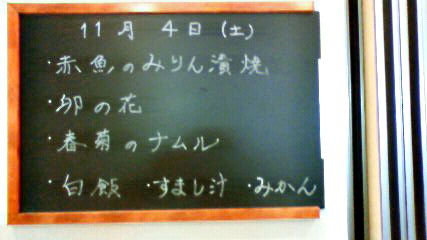 11月 4日(土)
・赤魚のみりん漬焼
・卯の花
・春菊のナムル
・白飯 ・すまし汁 ・みかん